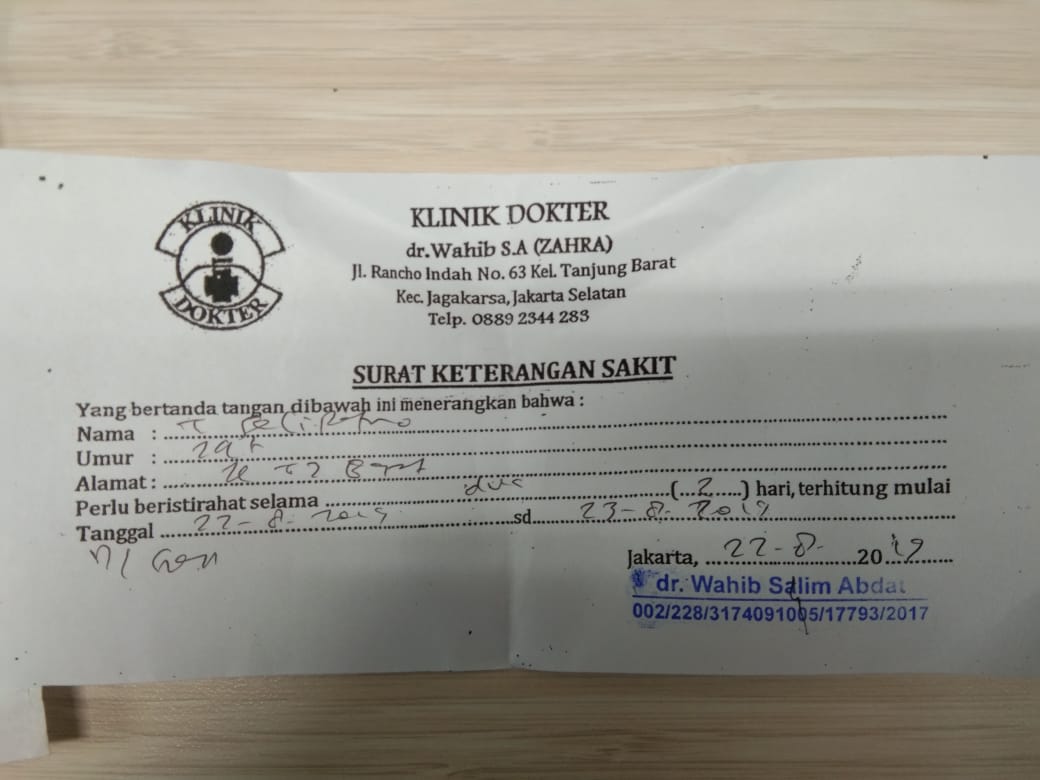 KLINIK
DOKTER
KLINIK DOKTER
dr.Wahib S.A (ZAHRA)
Jl. Rancho Indah No. 63 Kel. Tanjung Barat
Kec. Jagakarsa, Jakarta Selatan
Telp. 0889 2344 283
SURAT KETERANGAN SAKIT
Yang bertanda tangan dibawah ini menerangkan bahwa :
Nama :
Umur :
Alamat :
Perlu beristirahat selama dua (2) hari, terhitung mulai
Tanggal 22-8-2019 sd 23-8-2019
Jakarta, 22-8- 2019
dr. Wahib Salim Abdat
002/228/3174091005/17793/2017